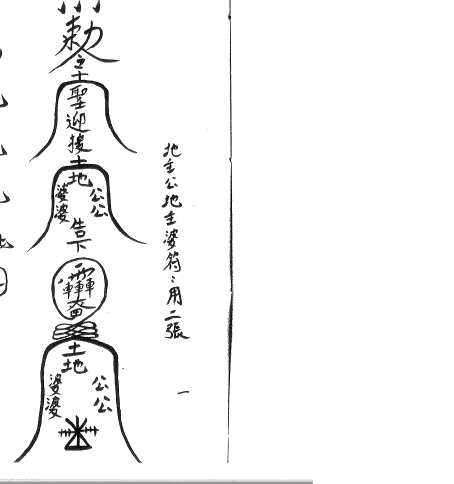 地主公地主婆符：用二張
一
勅
主
聖
迎
接
土
地
公公
婆婆
告
下
土
地
公公
婆婆